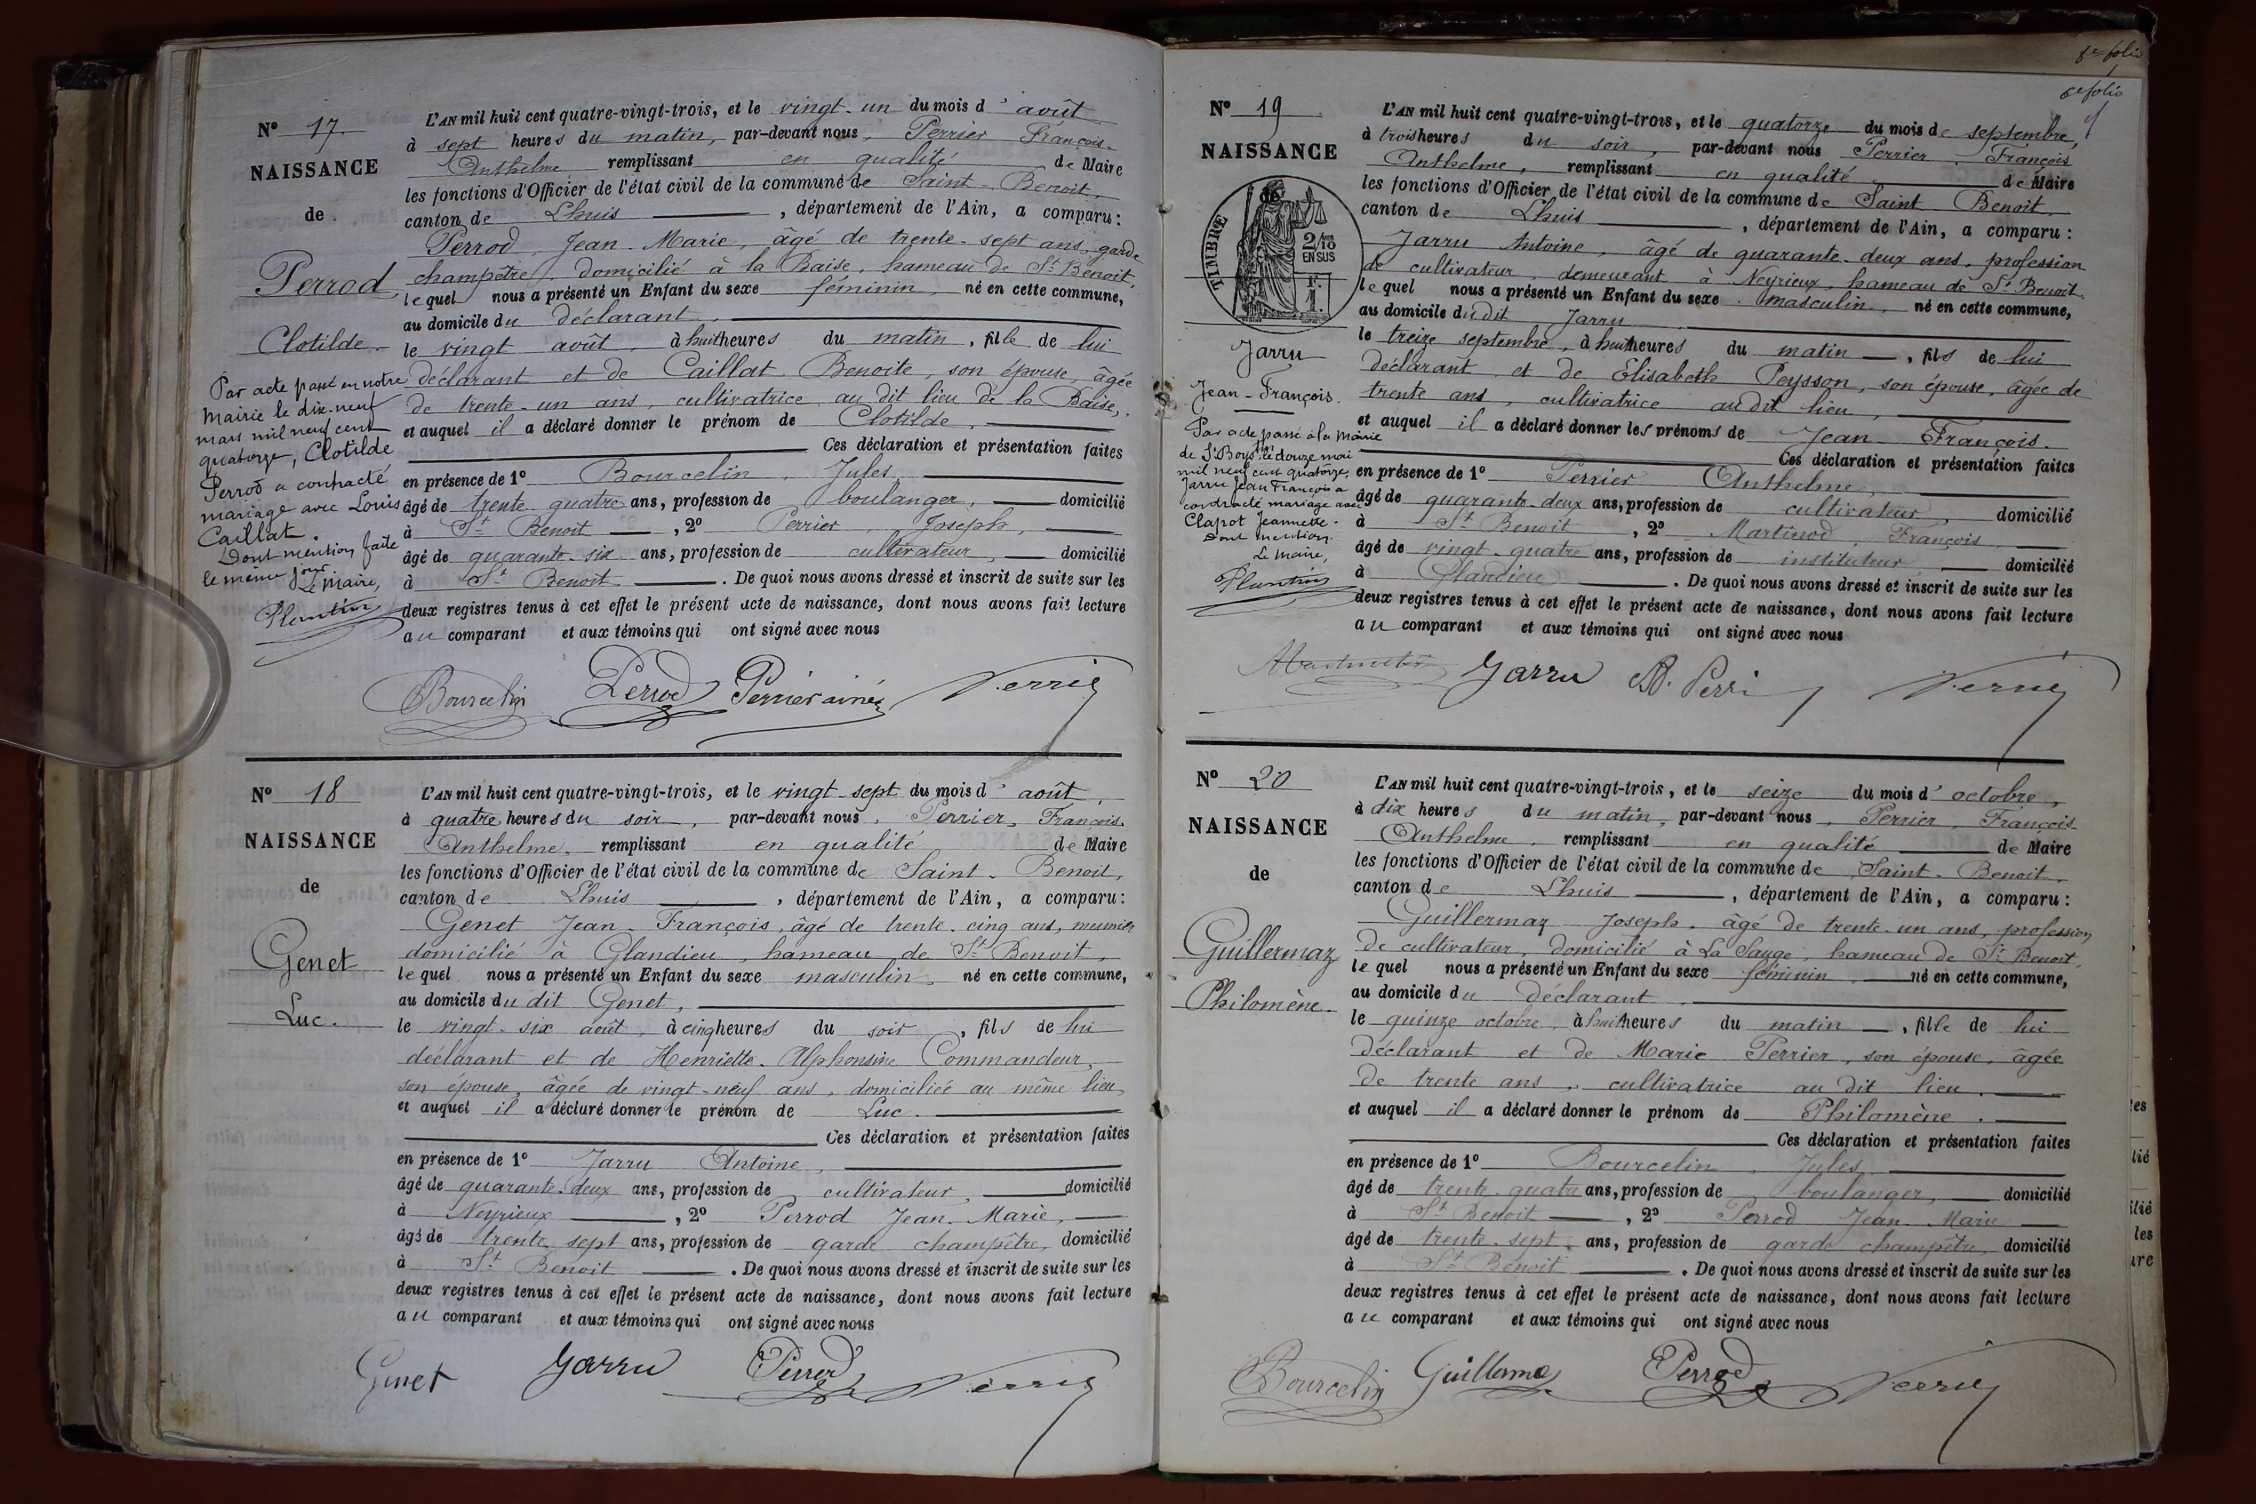 N° 17.
NAISSANCE
de
Perrod
Clotilde.
Par acte passé en notre
Mairie le dix-neuf
mars mil neuf cent
quatorze, Clotilde
Perrod a contracté
mariage avec Louis
Caillat.
Dont mention faite
le même jour
Le Maire,
Plantin
L'AN mil huit cent quatre-vingt-trois, et le vingt-un du mois d'août
à sept heures du matin, par-devant nous, Perrier François-
Anthelme remplissant en qualité de Maire
les fonctions d'Officier de l'état civil de la commune de Saint-Benoit,
canton de Lhuis, département de l'Ain, a comparu:
Perrod, Jean-Marie, âgé de trente-sept ans, garde
champêtre, domicilié à la Baise, hameau de St Benoit,
lequel nous a présenté un Enfant du sexe féminin, né en cette commune,
au domicile du déclarant,
le vingt août, à huit heures du matin, fille de lui
déclarant et de Caillat Benoite, son épouse, âgée
de trente-un ans, cultivatrice au dit lieu de la Baise,
et auquel il a déclaré donner le prénom de Clotilde.
Ces déclaration et présentation faites
en présence de 1° Bourcelin, Jules,
âgé de trente quatre ans, profession de boulanger, domicilié
à St Benoit, 2° Perrier Joseph,
âgé de quarante-six ans, profession de cultivateur, domicilié
à St Benoit. De quoi nous avons dressé et inscrit de suite sur les
deux registres tenus à cet effet le présent acte de naissance, dont nous avons fait lecture
au comparant et aux témoins qui ont signé avec nous
Bourcelin Perrod Perrier ainé Perrier
N° 18
NAISSANCE
de
Genet
Luc.
L'AN mil huit cent quatre-vingt-trois, et le vingt-sept du mois d'août,
à quatre heures du soir, par-devant nous, Perrier, François
Anthelme, remplissant en qualité de Maire
les fonctions d'Officier de l'état civil de la commune de Saint-Benoit,
canton de Lhuis, département de l'Ain, a comparu:
Genet Jean-François, âgé de trente-cinq ans, meunier
domicilié à Glandieu, hameau de St Benoit,
lequel nous a présenté un Enfant du sexe masculin, né en cette commune,
au domicile du dit Genet,
le vingt-six août, à cinq heures du soir, fils de lui
déclarant et de Henriette-Alphonsine Commandeur,
son épouse, âgée de vingt-neuf ans, domiciliée au même lieu
et auquel il a déclaré donner le prénom de Luc.
Ces déclaration et présentation faites
en présence de 1° Jarru Antoine,
âgé de quarante-deux ans, profession de cultivateur, domicilié
à Neyrieux, 2° Perrod Jean-Marie,
âgé de trente-sept ans, profession de garde champêtre, domicilié
à St Benoit. De quoi nous avons dressé et inscrit de suite sur les
deux registres tenus à cet effet le présent acte de naissance, dont nous avons fait lecture
au comparant et aux témoins qui ont signé avec nous
Genet Jarru Perrod Perrier
6e folio
N° 19
NAISSANCE
de
TIMBRE
2/10
EN SUS
Jarru
Jean-François.
Par acte passé à la Mairie
de St Bois, le douze mai
mil neuf cent quatorze,
Jarru Jean François a
contracté mariage avec
Clapot Jeannette.
Dont mention.
Le Maire,
Plantin
L'AN mil huit cent quatre-vingt-trois, et le quatorze du mois de septembre,
à trois heures du soir, par-devant nous Perrier, François
Anthelme, remplissant en qualité de Maire
les fonctions d'Officier de l'état civil de la commune de Saint Benoit,
canton de Lhuis, département de l'Ain, a comparu:
Jarru Antoine, âgé de quarante-deux ans, profession
de cultivateur, demeurant à Neyrieux, hameau de St Benoit,
lequel nous a présenté un Enfant du sexe masculin, né en cette commune,
au domicile dudit Jarru
le treize septembre, à huit heures du matin, fils de lui
déclarant et de Elisabeth Peysson, son épouse, âgée de
trente ans, cultivatrice au dit lieu,
et auquel il a déclaré donner les prénoms de Jean-François.
Ces déclaration et présentation faites
en présence de 1° Perrier Anthelme,
âgé de quarante-deux ans, profession de cultivateur, domicilié
à St Benoit, 2° Martinod, François
âgé de vingt-quatre ans, profession de instituteur, domicilié
à Glandieu. De quoi nous avons dressé et inscrit de suite sur les
deux registres tenus à cet effet le présent acte de naissance, dont nous avons fait lecture
au comparant et aux témoins qui ont signé avec nous
Jarru Perrier
N° 20
NAISSANCE
de
Guillermaz
Philomène.
L'AN mil huit cent quatre-vingt-trois, et le seize du mois d'octobre,
à dix heures du matin, par-devant nous, Perrier, François-
Anthelme, remplissant en qualité de Maire
les fonctions d'Officier de l'état civil de la commune de Saint-Benoit,
canton de Lhuis, département de l'Ain, a comparu:
Guillermaz Joseph, âgé de trente-un ans, profession
de cultivateur, domicilié à La Sauge, hameau de St Benoit,
lequel nous a présenté un Enfant du sexe féminin, né en cette commune,
au domicile du déclarant,
le quinze octobre, à huit heures du matin, fille de lui
déclarant et de Marie Perrier, son épouse, âgée
de trente ans, cultivatrice au dit lieu,
et auquel il a déclaré donner le prénom de Philomène.
Ces déclaration et présentation faites
en présence de 1° Bourcelin, Jules,
âgé de trente-quatre ans, profession de boulanger, domicilié
à St Benoit, 2° Perrod Jean-Marie
âgé de trente-sept ans, profession de garde champêtre domicilié
à St Benoit. De quoi nous avons dressé et inscrit de suite sur les
deux registres tenus à cet effet le présent acte de naissance, dont nous avons fait lecture
au comparant et aux témoins qui ont signé avec nous
Bourcelin Guillermaz Perrod Perrier